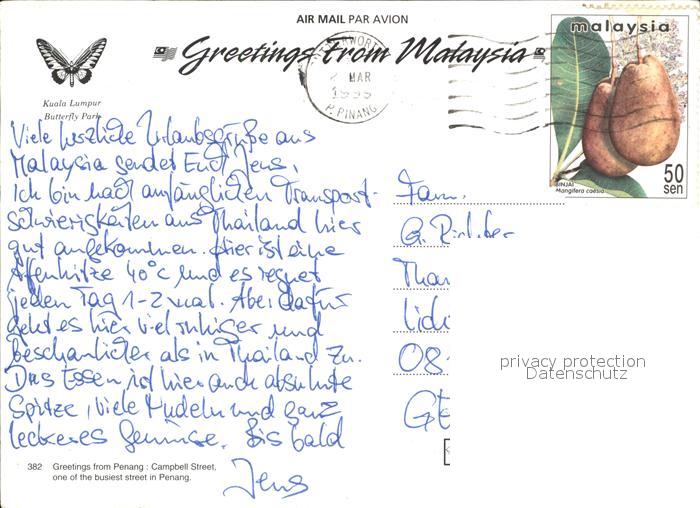 AIR MAIL PAR AVION
Greetings from Malaysia
malaysia
Kuala Lumpur
Butterfly Park
MAR
P. PINANG
BINJAI
Mangifera caesia
50
sen
Viele herzliche Urlaubsgrüße aus
Malaysia sendet Euch Jens,
Ich bin nach anfänglichen Transport-
schwierigkeiten aus Thailand hier
gut angekommen. Hier ist eine
Affenhitze 40°C und es regnet
jeden Tag 1-2 mal. Aber dafür
geht es hier viel ruhiger und
beschaulicher als in Thailand zu.
Das Essen ist hier auch absolute
Spitze, viele Nudeln und ganz
leckeres Gemüse. Bis bald
Jens
Fam.
G.
08
privacy protection
Datenschutz
382 Greetings from Penang : Campbell Street,
one of the busiest street in Penang.